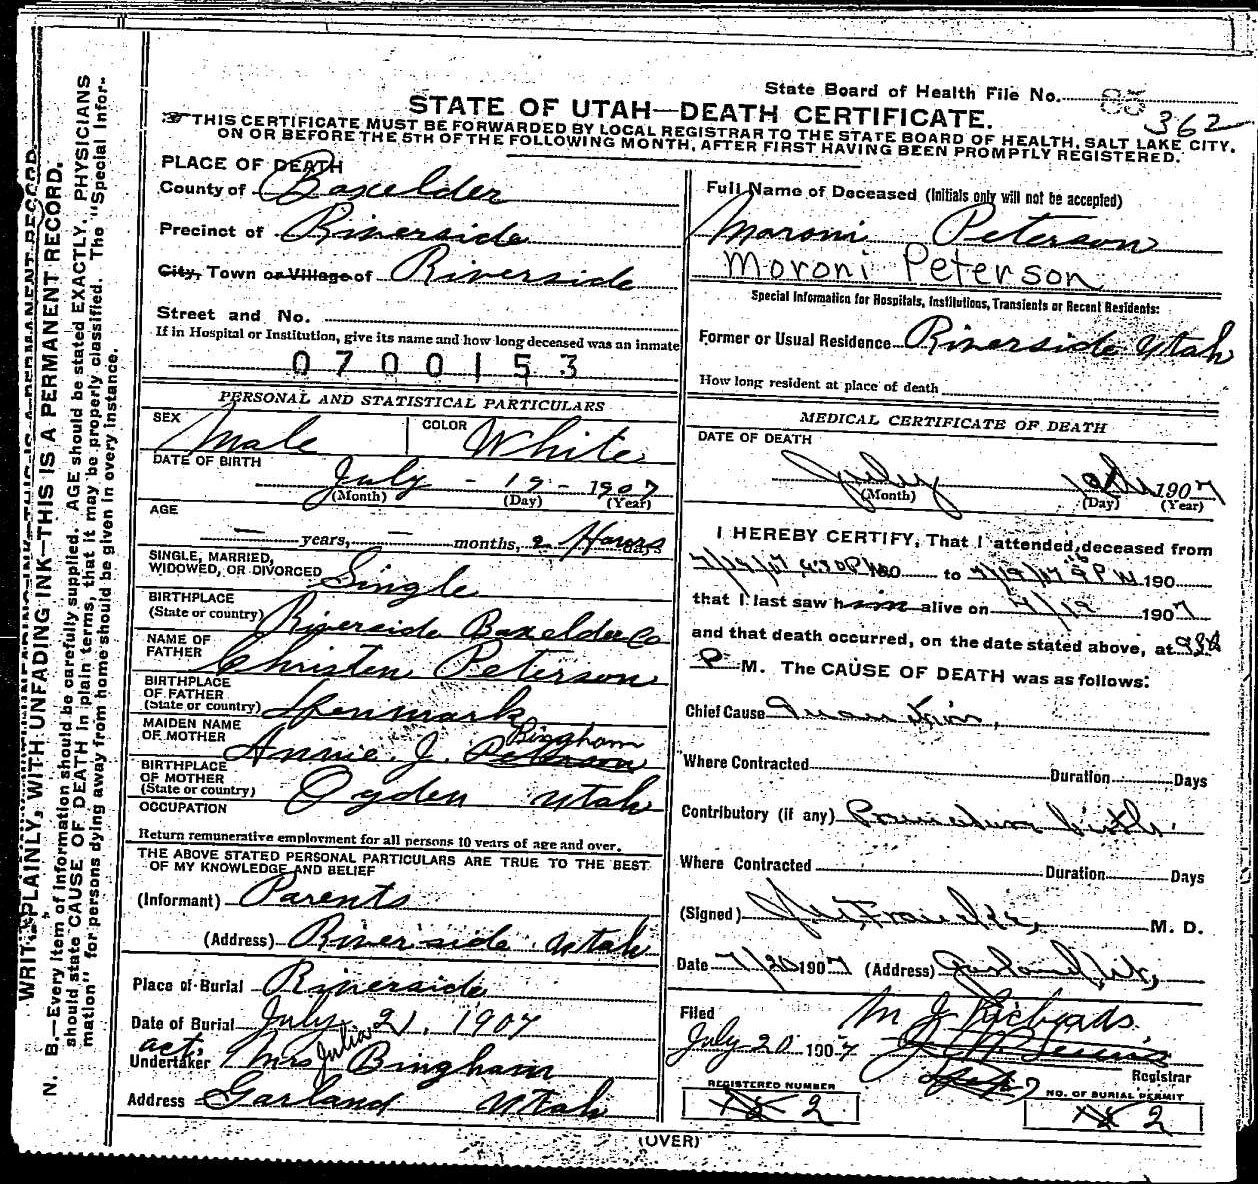 State Board of Health File No. 85 362
STATE OF UTAH—DEATH CERTIFICATE.
THIS CERTIFICATE MUST BE FORWARDED BY LOCAL REGISTRAR TO THE STATE BOARD OF HEALTH, SALT LAKE CITY.
ON OR BEFORE THE 5TH OF THE FOLLOWING MONTH, AFTER FIRST HAVING BEEN PROMPTLY REGISTERED.
PLACE OF DEATH
County of Boxelder
Precinct of Riverside
City, Town or Village of Riverside
Street and No.
If in Hospital or Institution, give its name and how long deceased was an inmate
0700153
PERSONAL AND STATISTICAL PARTICULARS
SEX Male COLOR White
DATE OF BIRTH
July - 19 - 1907
(Month) (Day) (Year)
AGE
— years, — months, 2 Hours days
SINGLE, MARRIED,
WIDOWED, OR DIVORCED Single
BIRTHPLACE
(State or country) Riverside Boxelder Co
NAME OF
FATHER Christen Peterson
BIRTHPLACE
OF FATHER
(State or country) Denmark
MAIDEN NAME
OF MOTHER Annie J. Peterson Bingham
BIRTHPLACE
OF MOTHER
(State or country) Ogden Utah
OCCUPATION
Return remunerative employment for all persons 10 years of age and over.
THE ABOVE STATED PERSONAL PARTICULARS ARE TRUE TO THE BEST
OF MY KNOWLEDGE AND BELIEF
(Informant) Parents
(Address) Riverside Utah
Place of Burial Riverside
Date of Burial July 21, 1907
act.
Undertaker Mrs Julia Bingham
Address Garland Utah
Full Name of Deceased (Initials only will not be accepted)
Moroni Peterson
Moroni Peterson
Special Information for Hospitals, Institutions, Transients or Recent Residents:
Former or Usual Residence Riverside Utah
How long resident at place of death
MEDICAL CERTIFICATE OF DEATH
DATE OF DEATH
July 19th 1907
(Month) (Day) (Year)
I HEREBY CERTIFY, That I attended deceased from
7/19/07 190 to 7/19/07 9 P M 190
that I last saw him alive on 7/19 1907
and that death occurred, on the date stated above, at
P M. The CAUSE OF DEATH was as follows:
Chief Cause
Where Contracted Duration Days
Contributory (if any) Premature birth.
Where Contracted Duration Days
(Signed) M. D.
Date 7/20 1907 (Address) Garland, Ut,
Filed M J Richards
July 20 1907
Registrar
REGISTERED NUMBER
2
NO. OF BURIAL PERMIT
2
(OVER)
WRITE PLAINLY, WITH UNFADING INK—THIS IS A PERMANENT RECORD.
N. B.—Every item of information should be carefully supplied. AGE should be stated EXACTLY. PHYSICIANS
should state CAUSE OF DEATH in plain terms, that it may be properly classified. The "Special Infor-
mation" for persons dying away from home should be given in every instance.